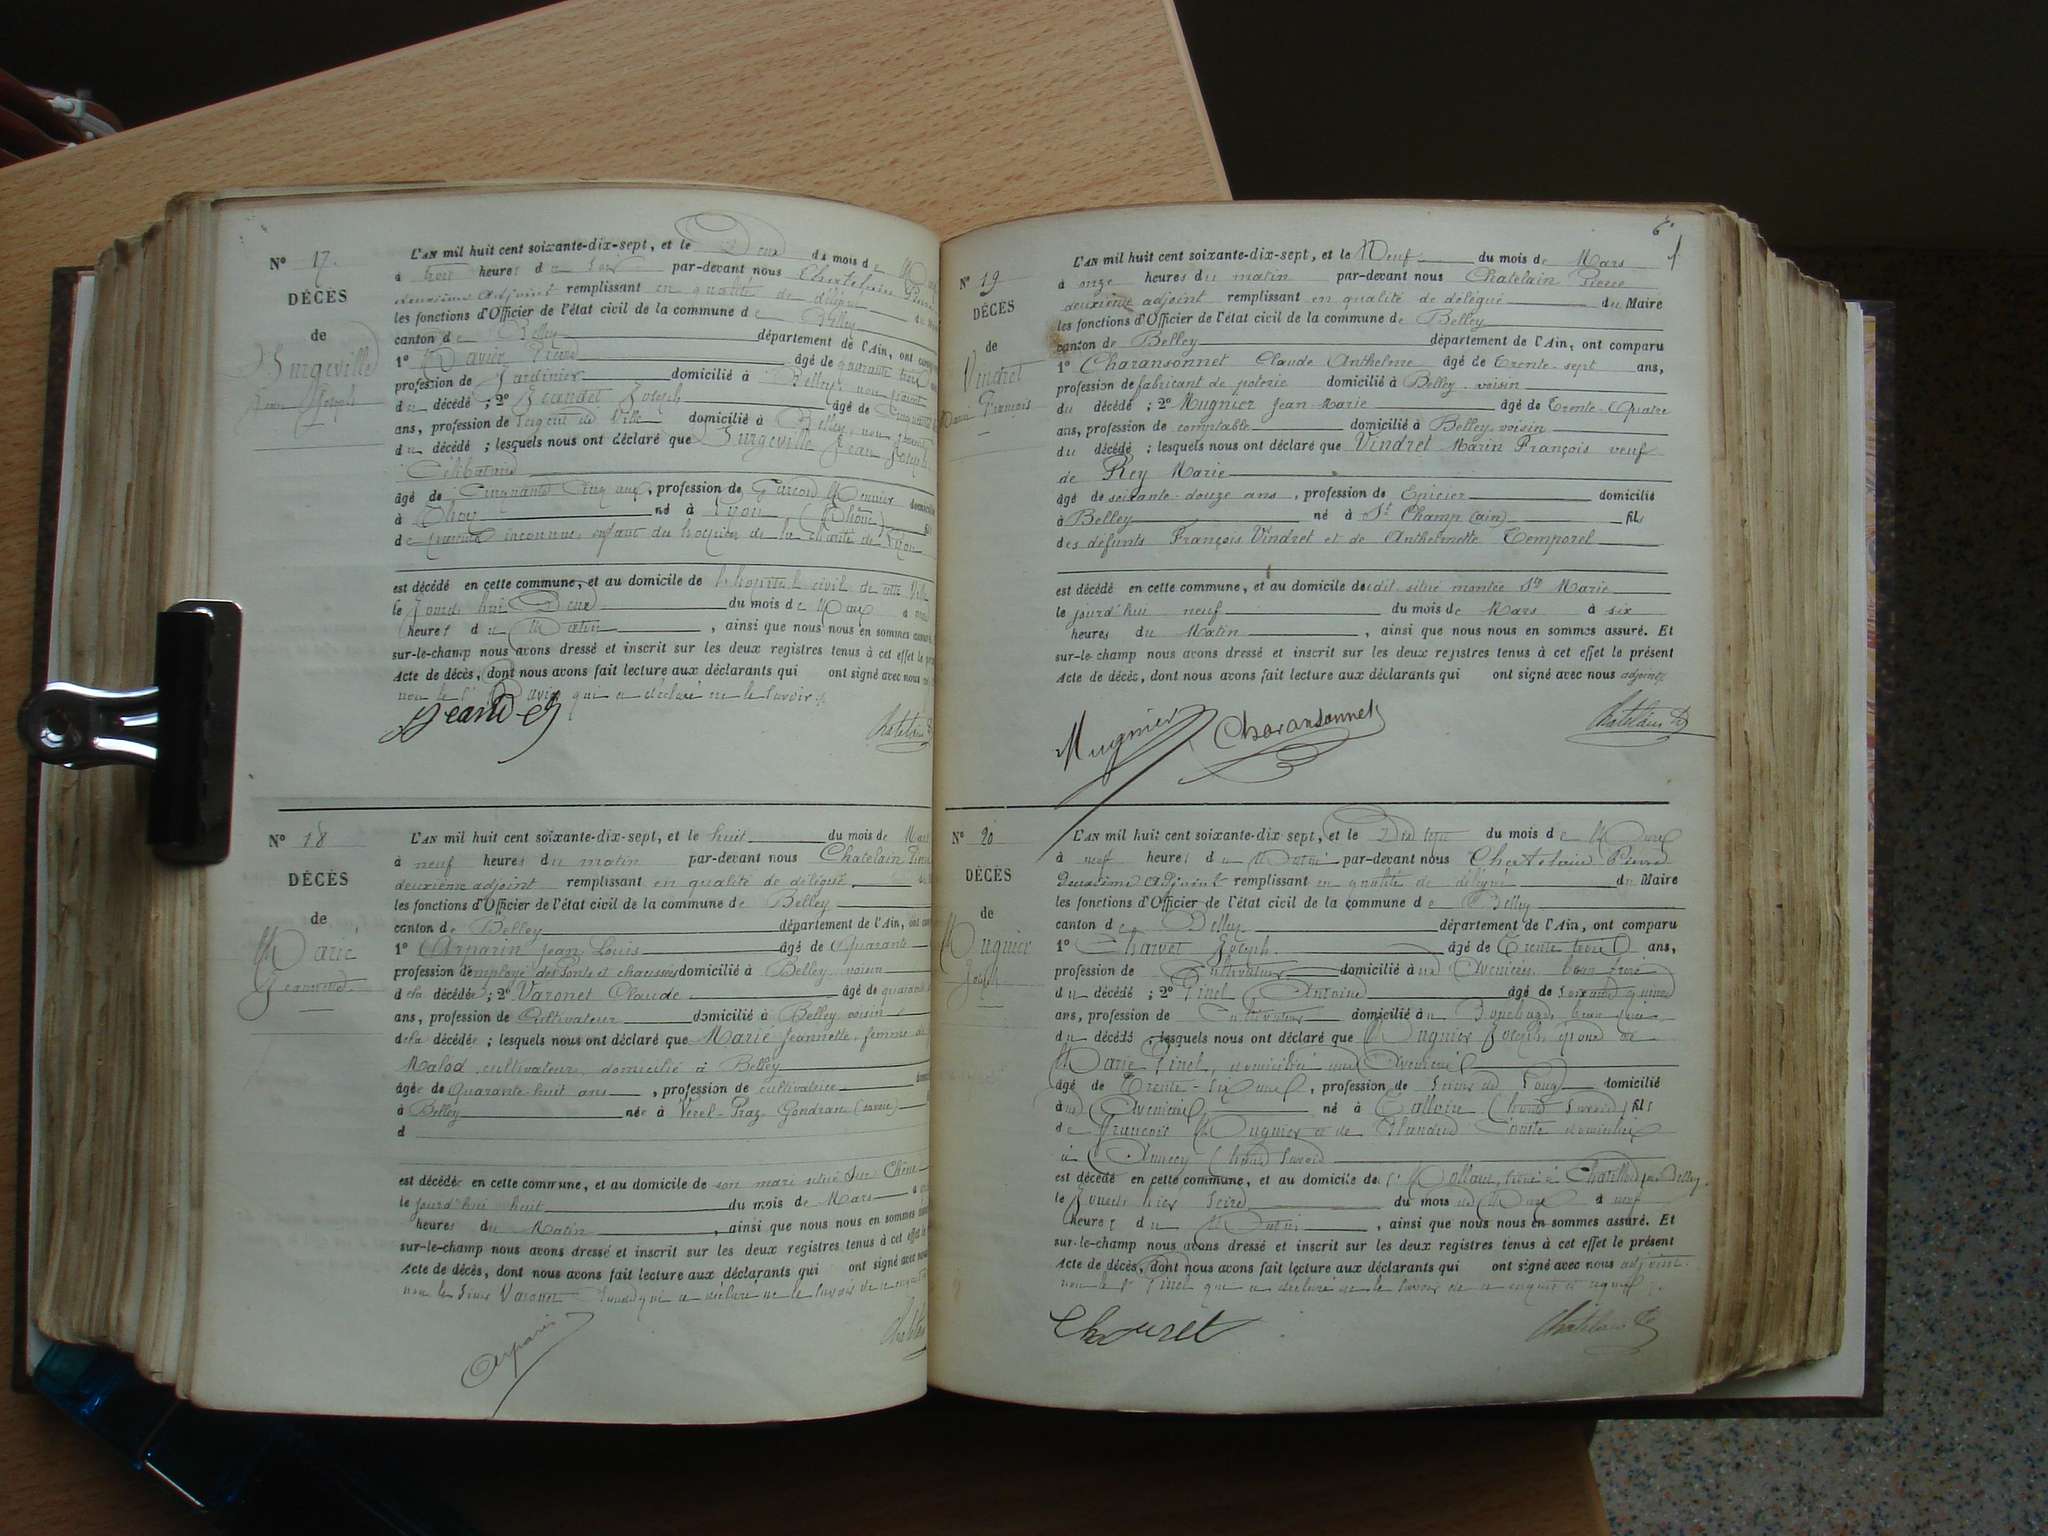 N° 17.
DÉCÈS
de
Surgeville
Jean Joseph
L'AN mil huit cent soixante-dix-sept, et le Deux du mois de
à trois heures du soir par-devant nous Chatelain Pierre
deuxième adjoint remplissant en qualité de délégué du
les fonctions d'Officier de l'état civil de la commune de Belley
canton de Belley département de l'Ain, ont
1° Pierre âgé de quarante trois
profession de Jardinier domicilié à Belley, non parent
du décédé ; 2° Jeandet Joseph âgé de
ans, profession de Sergent de Ville domicilié à Belley, non parent
du décédé ; lesquels nous ont déclaré que Surgeville Jean Joseph
Célibataire
âgé de Cinquante Cinq ans, profession de Garçon Meunier
à né à Lyon (Rhône)
de parents inconnus, enfant du hospice de la charité de Lyon
est décédé en cette commune, et au domicile de l'hôpital civil de cette Ville
le Jourd'hui Deux du mois de Mars à
heures du Matin, ainsi que nous nous en sommes assuré.
sur-le-champ nous avons dressé et inscrit sur les deux registres tenus à cet effet le
Acte de décès, dont nous avons fait lecture aux déclarants qui ont signé avec nous
non le Sr qui a déclaré ne le savoir
Jeandet
Chatelain
N° 18
DÉCÈS
de
Marié
Jeannette
L'AN mil huit cent soixante-dix-sept, et le huit du mois de Mars
à neuf heures du matin par-devant nous Chatelain Pierre
deuxième adjoint remplissant en qualité de délégué
les fonctions d'Officier de l'état civil de la commune de Belley
canton de Belley département de l'Ain, ont
1° Arparin Jean Louis âgé de Quarante
profession d'employé des Ponts et chaussées domicilié à Belley voisin
de la décédée ; 2° Varonet Claude âgé de quarante
ans, profession de Cultivateur domicilié à Belley voisin
de la décédée ; lesquels nous ont déclaré que Marié Jeannette, femme de
Malod, cultivateur, domicilié à Belley
âgée de Quarante huit ans, profession de cultivatrice
à Belley née à Verel-Praz-Gondran (Savoie)
d
est décédée en cette commune, et au domicile de son mari situé Sur Chêne
le jourd'hui huit du mois de Mars à
heures du Matin, ainsi que nous nous en sommes
sur-le-champ nous avons dressé et inscrit sur les deux registres tenus à cet effet le
Acte de décès, dont nous avons fait lecture aux déclarants qui ont signé avec nous
non le Sieur Varonet Claude qui a déclaré ne le savoir de ce enquis
Arparin
Chatelain
6.
N° 19
DÉCÈS
de
Vindret
Marin François
L'AN mil huit cent soixante-dix-sept, et le Neuf du mois de Mars
à onze heures du matin par-devant nous Chatelain Pierre
deuxième adjoint remplissant en qualité de délégué du Maire
les fonctions d'Officier de l'état civil de la commune de Belley
canton de Belley département de l'Ain, ont comparu
1° Charansonnet Claude Anthelme âgé de trente-sept ans,
profession de fabricant de poterie domicilié à Belley voisin
du décédé ; 2° Mugnier Jean-Marie âgé de Trente-Quatre
ans, profession de comptable domicilié à Belley voisin
du décédé ; lesquels nous ont déclaré que Vindret Marin François veuf
de Rey Marie
âgé de soixante-douze ans, profession de Epicier domicilié
à Belley né à St Champ (ain) fils
des défunts François Vindret et de Anthelmette Temporel
est décédé en cette commune, et au domicile dedit situé montée Ste Marie
le jourd'hui neuf du mois de Mars à six
heures du Matin, ainsi que nous nous en sommes assuré. Et
sur-le-champ nous avons dressé et inscrit sur les deux registres tenus à cet effet le présent
Acte de décès, dont nous avons fait lecture aux déclarants qui ont signé avec nous adjoint
Mugnier Charansonnet
Chatelain
N° 20
DÉCÈS
de
Mugnier
Joseph
L'AN mil huit cent soixante-dix-sept, et le Dix sept du mois de Mars
à neuf heures du Matin par-devant nous Chatelain Pierre
Deuxième adjoint remplissant en qualité de délégué du Maire
les fonctions d'Officier de l'état civil de la commune de Belley
canton de Belley département de l'Ain, ont comparu
1° Charvet Joseph âgé de Trente trois ans,
profession de Cultivateur domicilié à beau frère
du décédé ; 2° Pinel Antoine âgé de Soixante quinze
ans, profession de Cultivateur domicilié à beau père
du décédé ; lesquels nous ont déclaré que Mugnier Joseph, époux de
Marie Pinel, domicilié
âgé de Trente-Six ans, profession de Scieur de Long domicilié
né à Talloire (haute Savoie) fils
de François Mugnier et de domiciliés
à Annecy (haute Savoie)
est décédé en cette commune, et au domicile de Sr situé à Chatillon par Belley
le Jourd'hier Seize du mois de Mars à neuf
heures du Matin, ainsi que nous nous en sommes assuré. Et
sur-le-champ nous avons dressé et inscrit sur les deux registres tenus à cet effet le présent
Acte de décès, dont nous avons fait lecture aux déclarants qui ont signé avec nous adjoint
non le Sr Pinel qui a déclaré ne le savoir de ce enquis et requis
Charvet
Chatelain